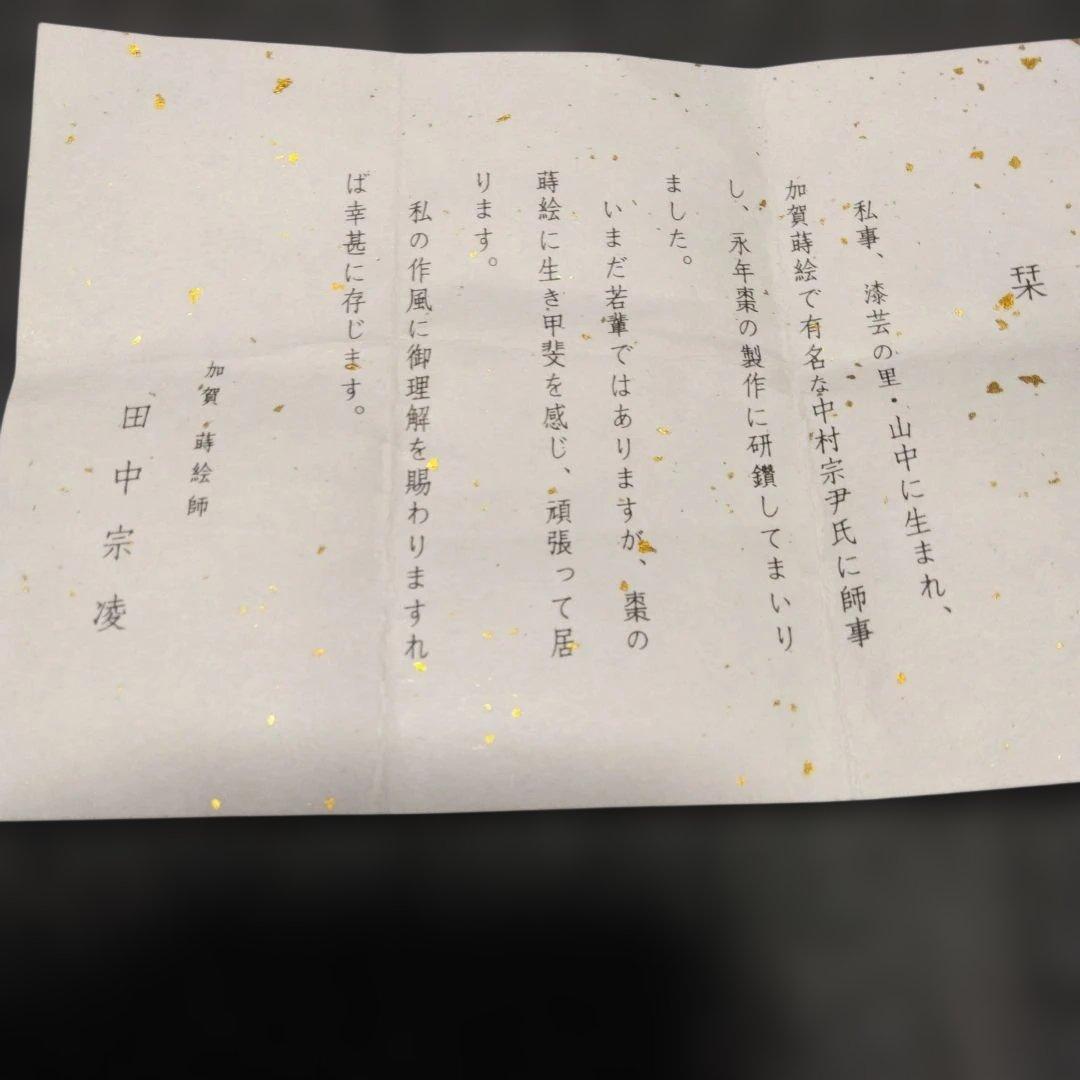 栞
私事、漆芸の里・山中に生まれ、
加賀蒔絵で有名な中村宗尹氏に師事
し、永年棗の製作に研鑽してまいり
ました。
いまだ若輩ではありますが、棗の
蒔絵に生き甲斐を感じ、頑張って居
ります。
私の作風に御理解を賜わりますれ
ば幸甚に存じます。
加賀・蒔絵師
田中宗凌